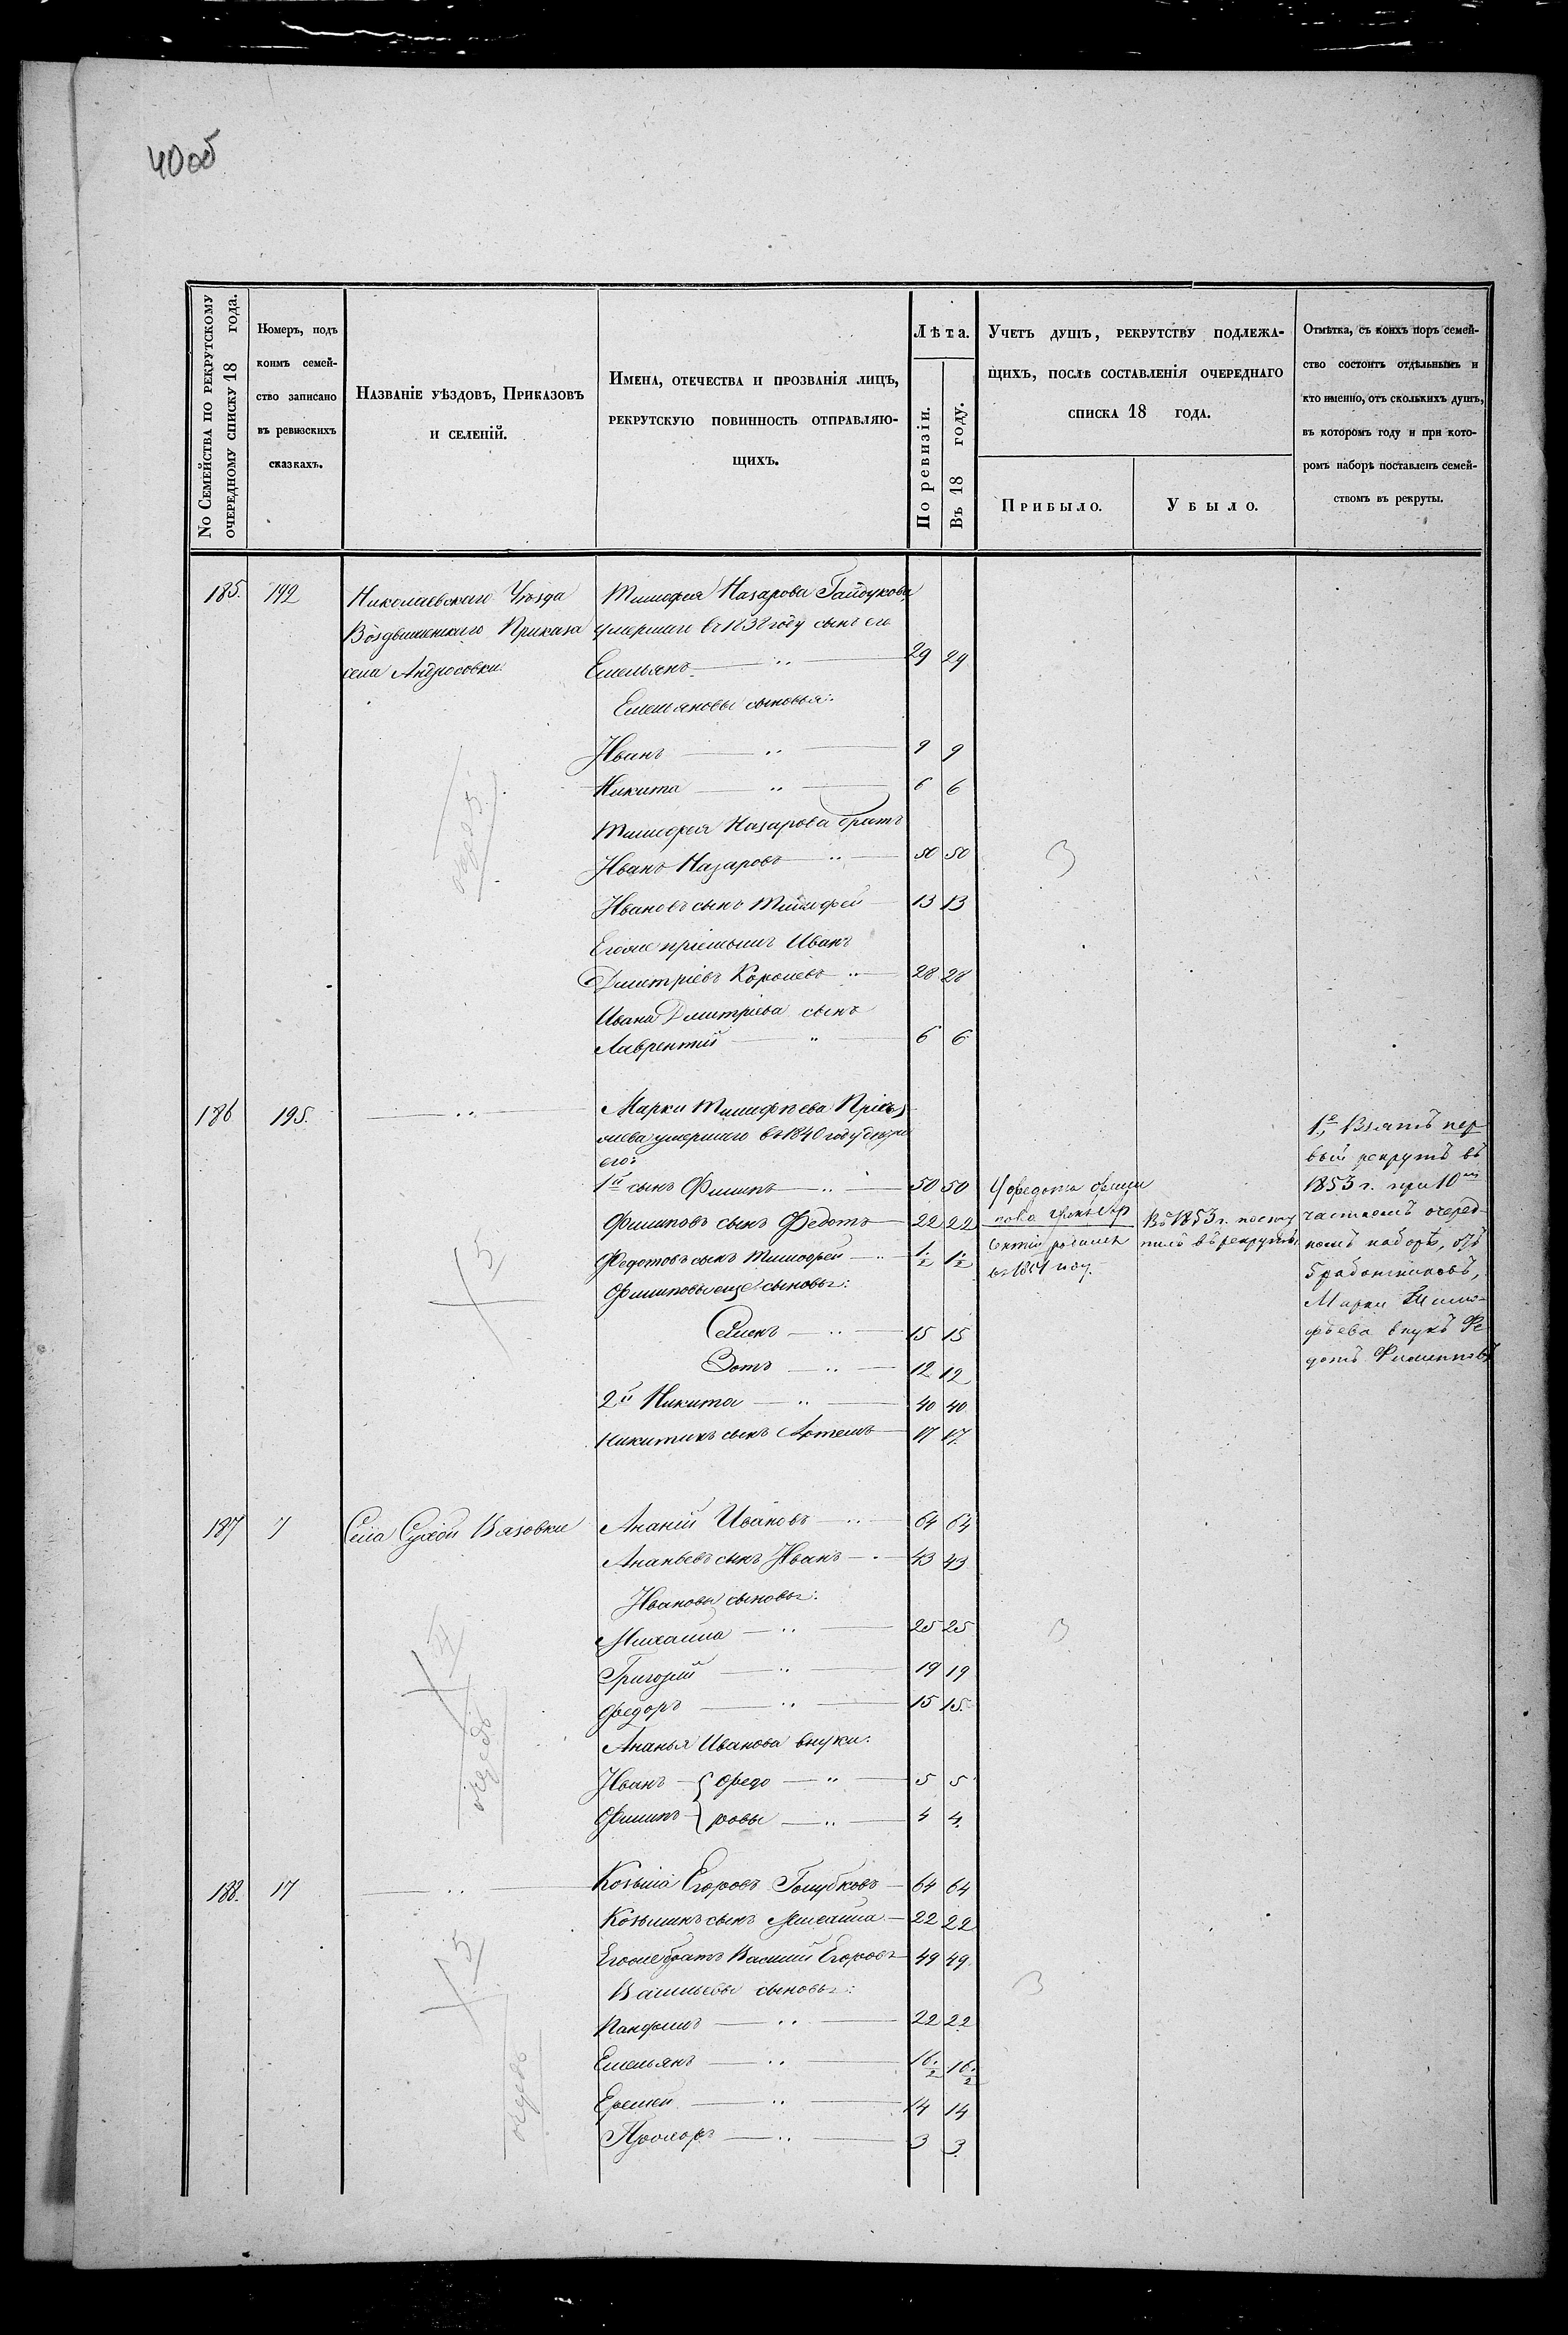 40об
No Семейства по рекрутскому
очередному списку 18 года.
Номеръ, подъ
коимъ семей-
ство записано
въ ревизскихъ
сказкахъ.
Названіе уѣздовъ, Приказовъ
и селеній.
Имена, отечества и прозванія лицъ,
рекрутскую повинность отправляю-
щихъ.
Лѣта.
По ревизіи.
Въ 18 году.
Учетъ душъ, рекрутству подлежа-
щихъ, послѣ составленія очереднаго
списка 18 года.
Прибыло.
Убыло.
Отмѣтка, съ коихъ поръ семей-
ство состоитъ отдѣльнымъ и
кто именно, отъ сколькихъ душъ,
въ которомъ году и при кото-
ромъ наборѣ поставленъ семей-
ствомъ въ рекруты.
185. 192 Николаевскаго Уѣзда Тимофея Назарова Гайдукова
Воздвиженскаго Приказа умершаго въ 1838 году сынъ его
села Андросовки Емельянъ 29 29
Емельяновы сыновья:
Иванъ 9 9
Никита 6 6
Тимофея Назарова братъ
Иванъ Назаровъ 50 50 3
Ивановъ сынъ Тимофей 13 13
Егоже пріемышъ Иванъ
Дмитріевъ Королевъ 28 28
Ивана Дмитріева сынъ
Лаврентій 6 6
186 195. Марки Тимофѣева
умершаго въ 1840 году дѣти
его:
1й сынъ Филипъ 50 50
Филиповъ сынъ Федотъ 22 22
Федотовъ сынъ Тимофей 1/2 1/2
Филиповы еще сыновья:
Семенъ 15 15
Зотъ 12 12
2й Никита 40 40
Никитинъ сынъ Артемъ 17 17
У Федота Фили
пова сынъ
родился
въ 1851 году.
Въ 1853 г. посту
пилъ въ рекруты.
1е, Взятъ пер
вый рекрутъ въ
1853 г. при 10мъ
частномъ очеред-
номъ наборѣ, отъ
5 работниковъ,
Марки Тимо-
фѣева внукъ Фе
дотъ Филиповъ
5
187 7 Села Сухой Вязовки Ананій Ивановъ 64 64
Ананьевъ сынъ Иванъ 43 43
Ивановы сыновья:
Михаила 25 25 3
Григорій 19 19
Федоръ 15 15.
Ананья Иванова внуки:
Иванъ { Федо 5 5
Филипъ } ровы 4 4
очередь
188. 17 Козьма Егоровъ Голубковъ 64 64
Козьминъ сынъ Михаила 22 22
Егоже братъ Василій Егоровъ 49 49
Васильевы сыновья: 3
Панфилъ 22 22
Емельянъ 16 1/2 16 1/2
Еремей 14 14
Прохоръ 3 3
5
очередь